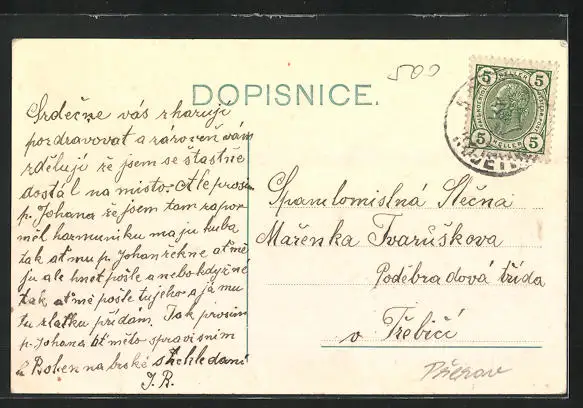 500
DOPISNICE.
5 HELLER 5
5 HELLER 5
Srdečne vás zharují
pozdravovat a zároveň vám
zdělují že jsem se štastně
dostál na místo. Ale prosím
p. Johana že jsem tam zapo
měl harmuniku maju huba
tak at mu p. Johan řekne at mě
ju ale hnet pošle a nebo když né
tak at mě pošle tu jeho a já mu
tu zlatku přidám. Tak prosím
p. Johana at mě to spraví snim
Z Bohem na brzké shehledaní
J. R.
Spanilomislná Slečna
Mařenka Tvarůškova
Poděbradová třída
v Třebíčí
Přerov